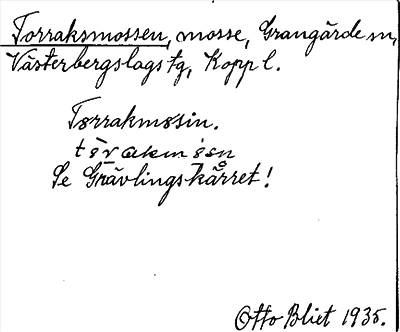 Torraksmossen, mosse, Grangärde sn,
Västerbergslags tg, Kopp l.
Tørrakmøsin.
Se Grävlingskärret!
Otto Bliet 1935.